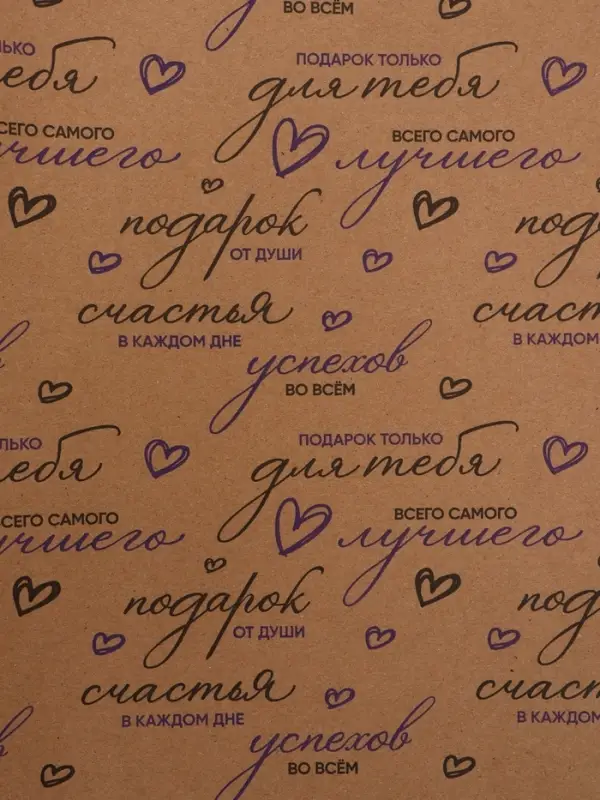 ВО ВСЁМ
ПОДАРОК ТОЛЬКО
для тебя
тебя
ВСЕГО САМОГО
лучшего
ВСЕГО САМОГО
лучшего
подарок
ОТ ДУШИ
счастья
В КАЖДОМ ДНЕ
В КАЖДОМ
успехов
ВО ВСЁМ
ПОДАРОК ТОЛЬКО
для тебя
тебя
ВСЕГО САМОГО
лучшего
ВСЕГО САМОГО
лучшего
подарок
ОТ ДУШИ
счастья
В КАЖДОМ ДНЕ
В КАЖДОМ
успехов
ВО ВСЁМ